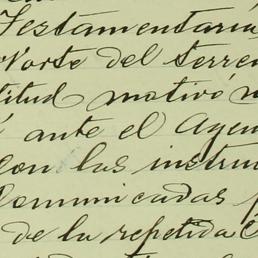 Testamentaria
Norte del terre
titud motivó
ante el Agen
con las instru
comunicadas
de la repetida